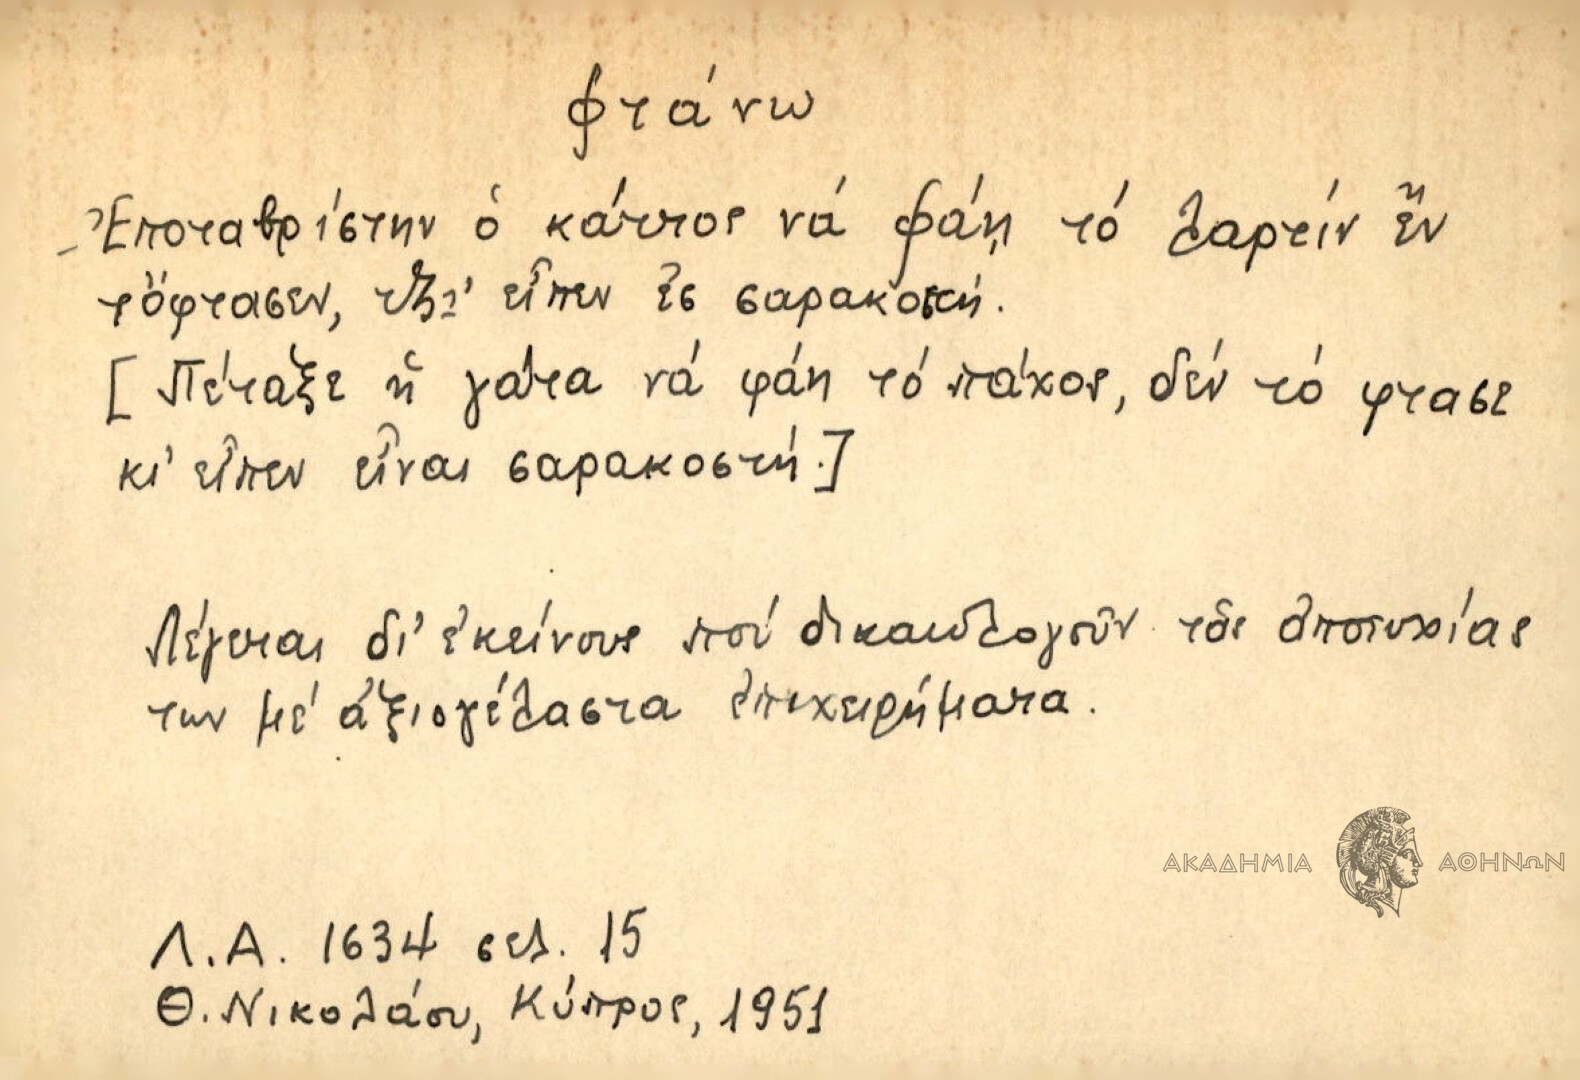 φτάνω
Ἐποταβρίστην ὁ κάττος νά φάῃ τό λαρτίν ἒν
τὄφτασεν, τζ̌ι' εἶπεν ἒς σαρακοστή.
[Πέταξε ἡ γάτα νά φάη τό πάχος, δέν τό φτασε
κι' εἶπεν εἶναι σαρακοστή.]
Λέγεται δι' ἐκείνους πού δικαιολογοῦν τάς ἀποτυχίας
των μέ ἀξιογέλαστα ἐπιχειρήματα.
ΑΚΑΔΗΜΙΑ ΑΘΗΝΩΝ
Λ.Α. 1634 σελ. 15
Θ. Νικολάου, Κύπρος, 1951